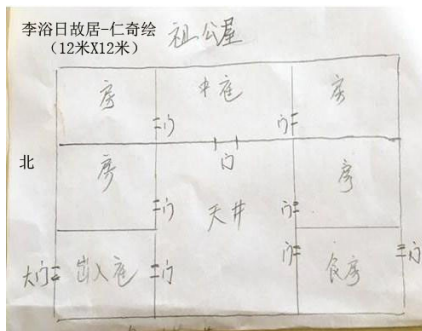 李浴日故居-仁奇绘
（12米X12米）
祖公屋
房 中庭 房
门 门
北
房 门 房
门 天井 门
大门 出入庭 门 门 食房 门